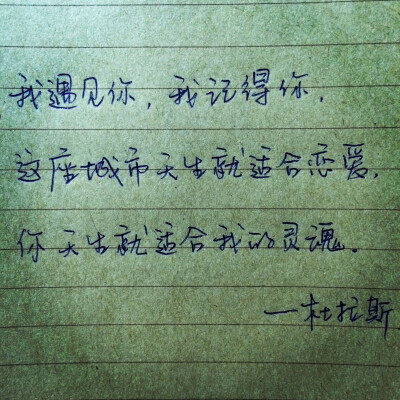 我遇见你，我记得你，
这座城市天生就适合恋爱，
你天生就适合我的灵魂。
—杜拉斯